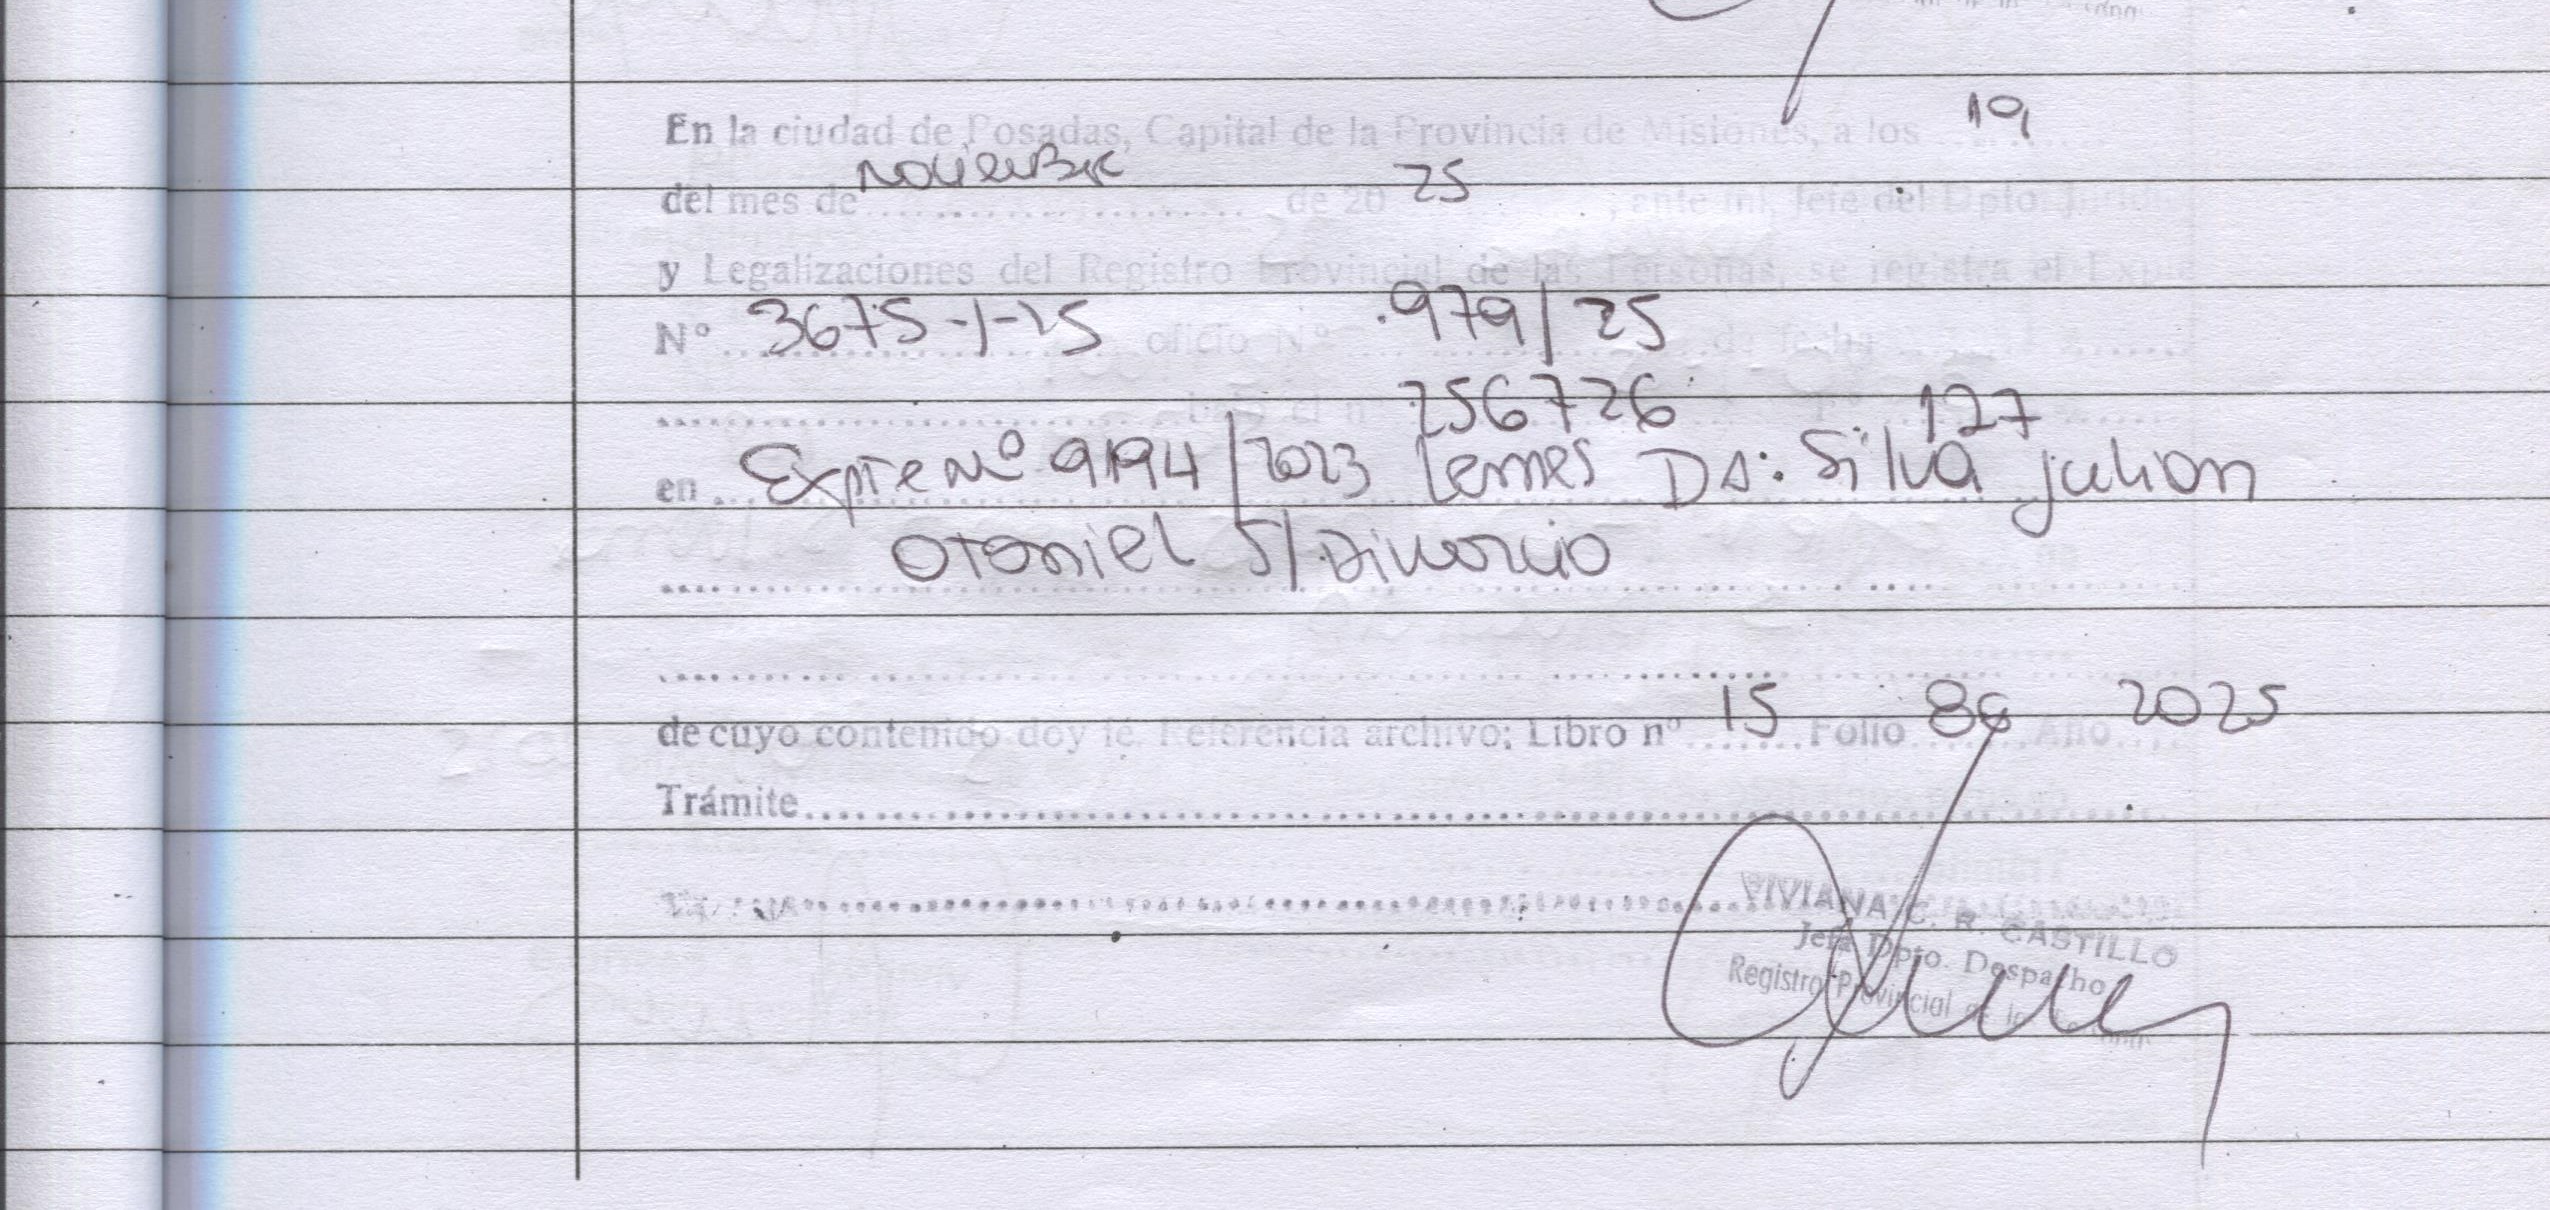 En la ciudad de Posadas, Capital de la Provincia de Misiones, a los 19
del mes de Noviembre de 20 25, ante mi, Jefe del Dpto.
y Legalizaciones del Registro Provincial de las Personas, se registra el
Nº 3675-1-25 oficio Nº 979/25 de fecha
256726 127
en Expte Nº 9194/2023 Lemes Da: Silva Julion
Otoniel S/Divorcio
de cuyo contenido doy fé. Referencia archivo: Libro nº 15 Folio 86 Año 2025
Trámite
VIVIANA C. R. CASTILLO
Jefa Dpto. Despacho
Registro Provincial